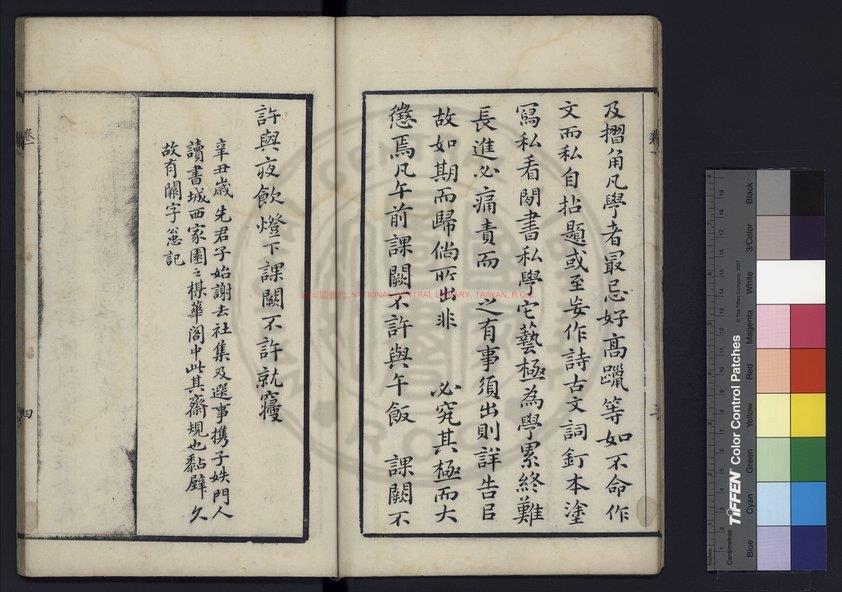 及摺角凡學者最忌好高躐等如不命作
文而私自拈題或至妄作詩古文詞釘本塗
寫私看閒書私學它藝極為學累終難
長進必痛責而 之有事須出則詳告日
故如期而歸倘所出非 必究其極而大
懲焉凡午前課闕不許與午飯 課闕不
許與夜飲燈下課闕不許就寢
辛丑歲 先君子始謝去社集及選事携子姪門人
讀書城西家園之棣華閣中此其齋規也黏壁久
故有闕字 記
卷一
四
NATIONAL CENTRAL LIBRARY, TAIWAN, R.O.C
TIFFEN Color Control Patches
© The Tiffen Company, 2007
Centimetres
Blue
Cyan
Green
Yellow
Red
Magenta
White
3/Color
Black